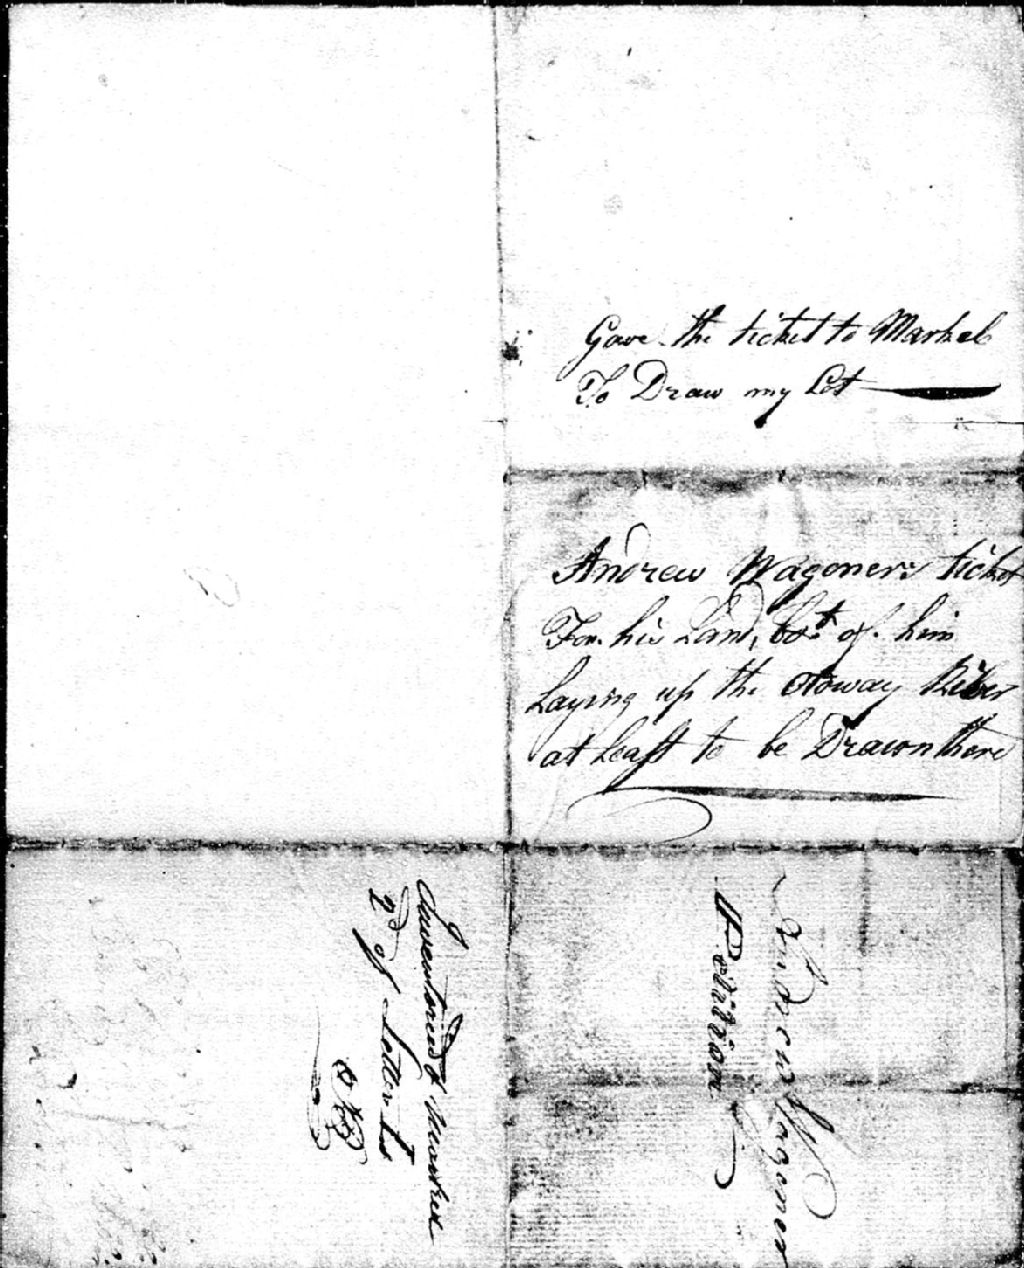 Gave the ticket to Markel
To Draw my Lot
Andrew Wagoners ticket
For his Land, bo.t of him
Laying up the River
at Least to be Drawn there
Andrew Wagoner
Petition
Inventoried & Marked
2d of Letter Ls